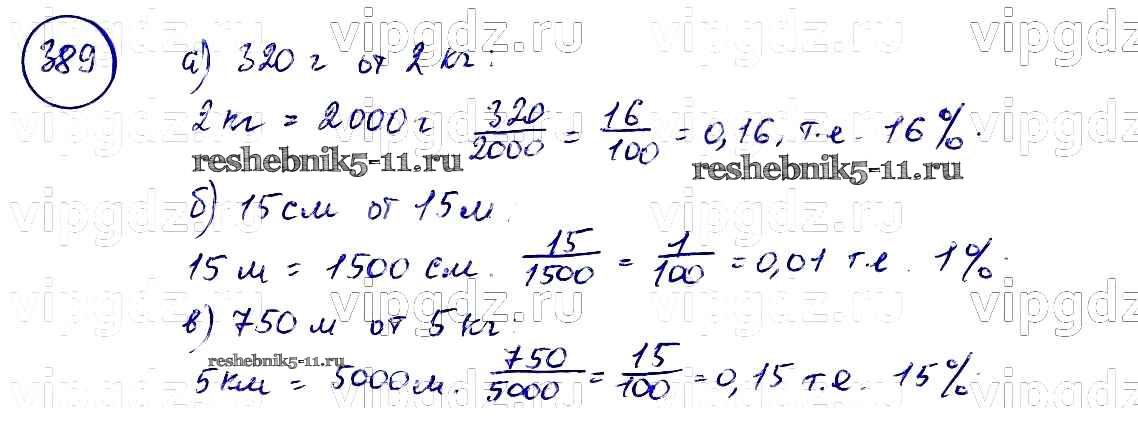 389 а) 320 г от 2 кг:
2 кг = 2000 г 320/2000 = 16/100 = 0,16, т.е. 16%.
reshebnik5-11.ru reshebnik5-11.ru
б) 15 см от 15 м.
15 м = 1500 см. 15/1500 = 1/100 = 0,01 т.е. 1%.
в) 750 м от 5 кг.
reshebnik5-11.ru
5 км = 5000 м. 750/5000 = 15/100 = 0,15 т.е. 15%.
vipgdz.ru vipgdz.ru vipgdz.ru
vipgdz.ru vipgdz.ru vipgdz.ru vipgdz.ru
vipgdz.ru vipgdz.ru vipgdz.ru vipgdz.ru
vipgdz.ru vipgdz.ru vipgdz.ru
vipgdz.ru vipgdz.ru vipgdz.ru